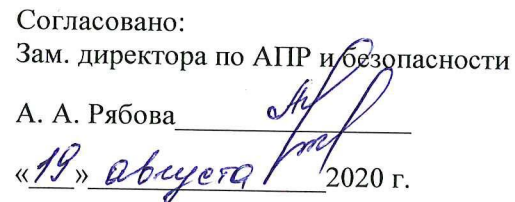 Согласовано:
Зам. директора по АПР и безопасности
А. А. Рябова
«19» августа 2020 г.